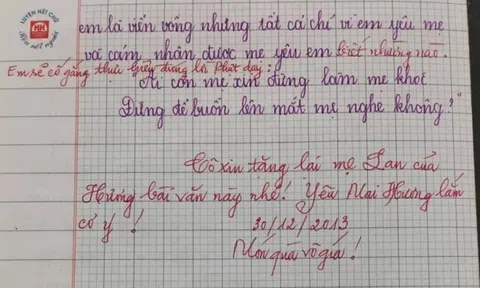 LUYỆN NÉT CHỮ
Rèn nết người
em là viển vông nhưng tất cả chỉ vì em yêu mẹ
và cảm nhận được mẹ yêu em biết nhường nào.
Em sẽ cố gắng thực hiện đúng lời Phật dạy:
Ai còn mẹ xin đừng làm mẹ khóc
Đừng để buồn lên mắt mẹ nghe không?"
Cô xin tặng lại mẹ Lan của
Hương bài văn này nhé! Yêu Mai Hương lắm
cơ ý !
30/12/2013
Món quà vô giá!